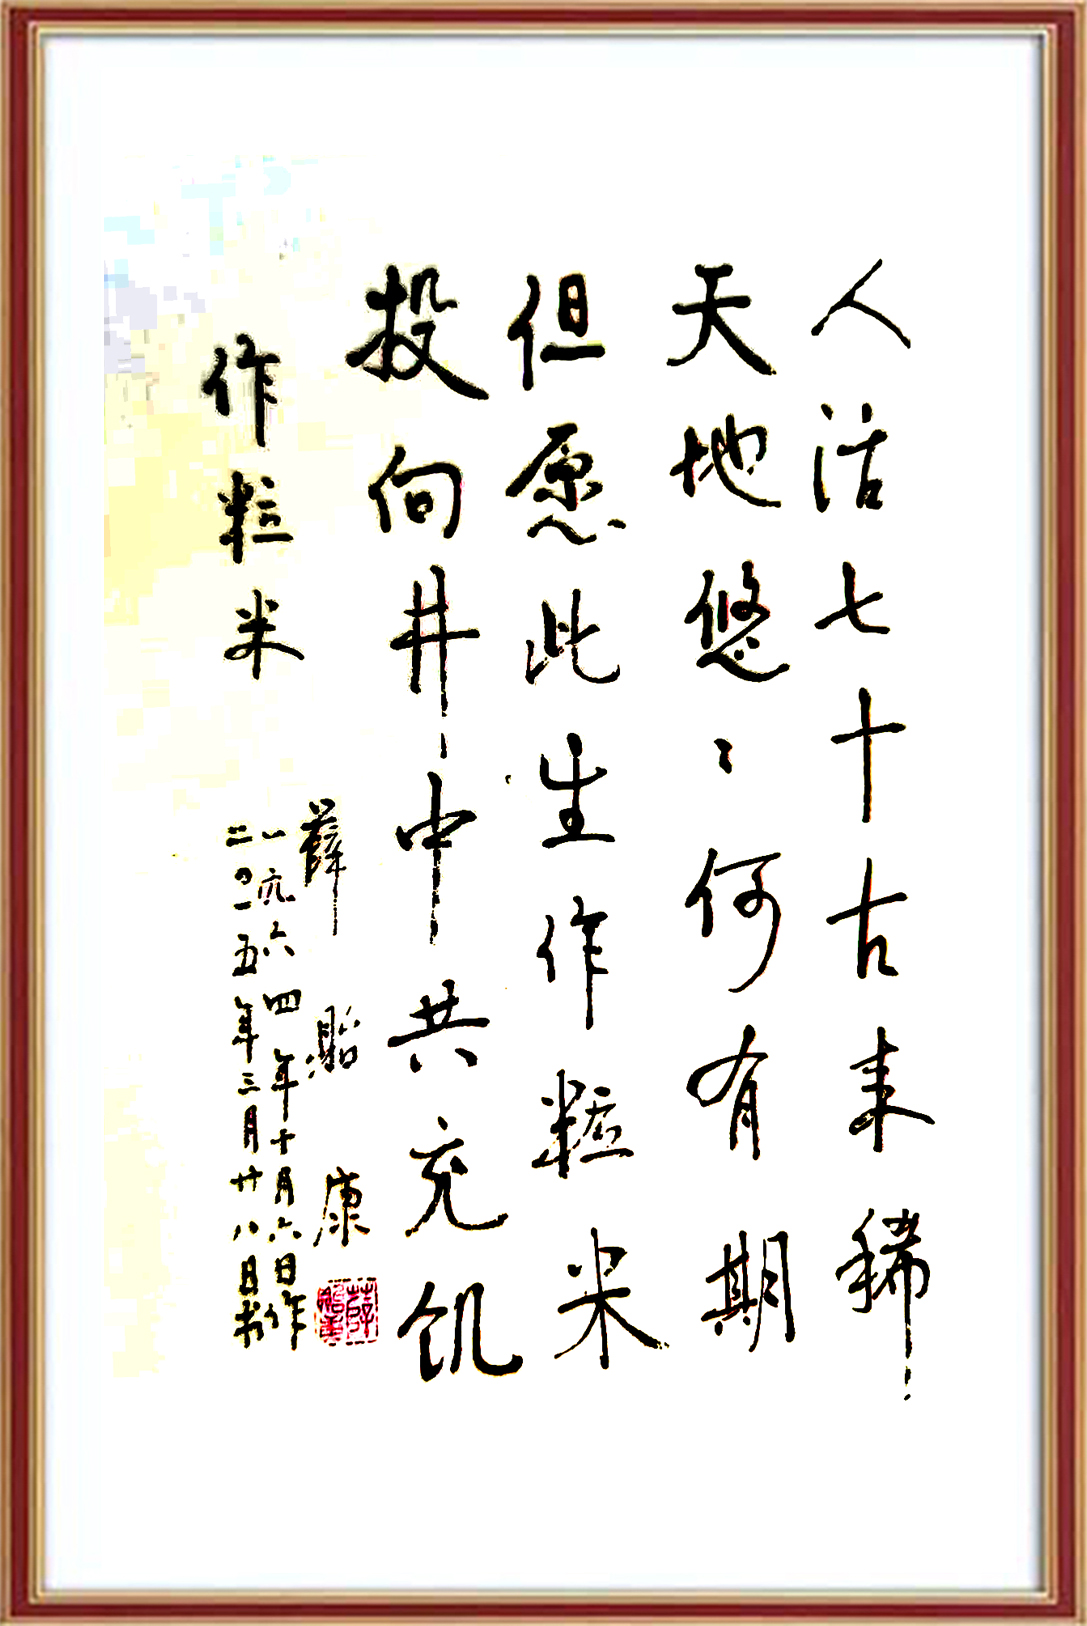 人活七十古来稀
天地悠〻何有期
但愿此生作粒米
投向井中共充饥
作粒米
薛貽康
一九六四年十月六日作
二〇一五年三月廿八日书